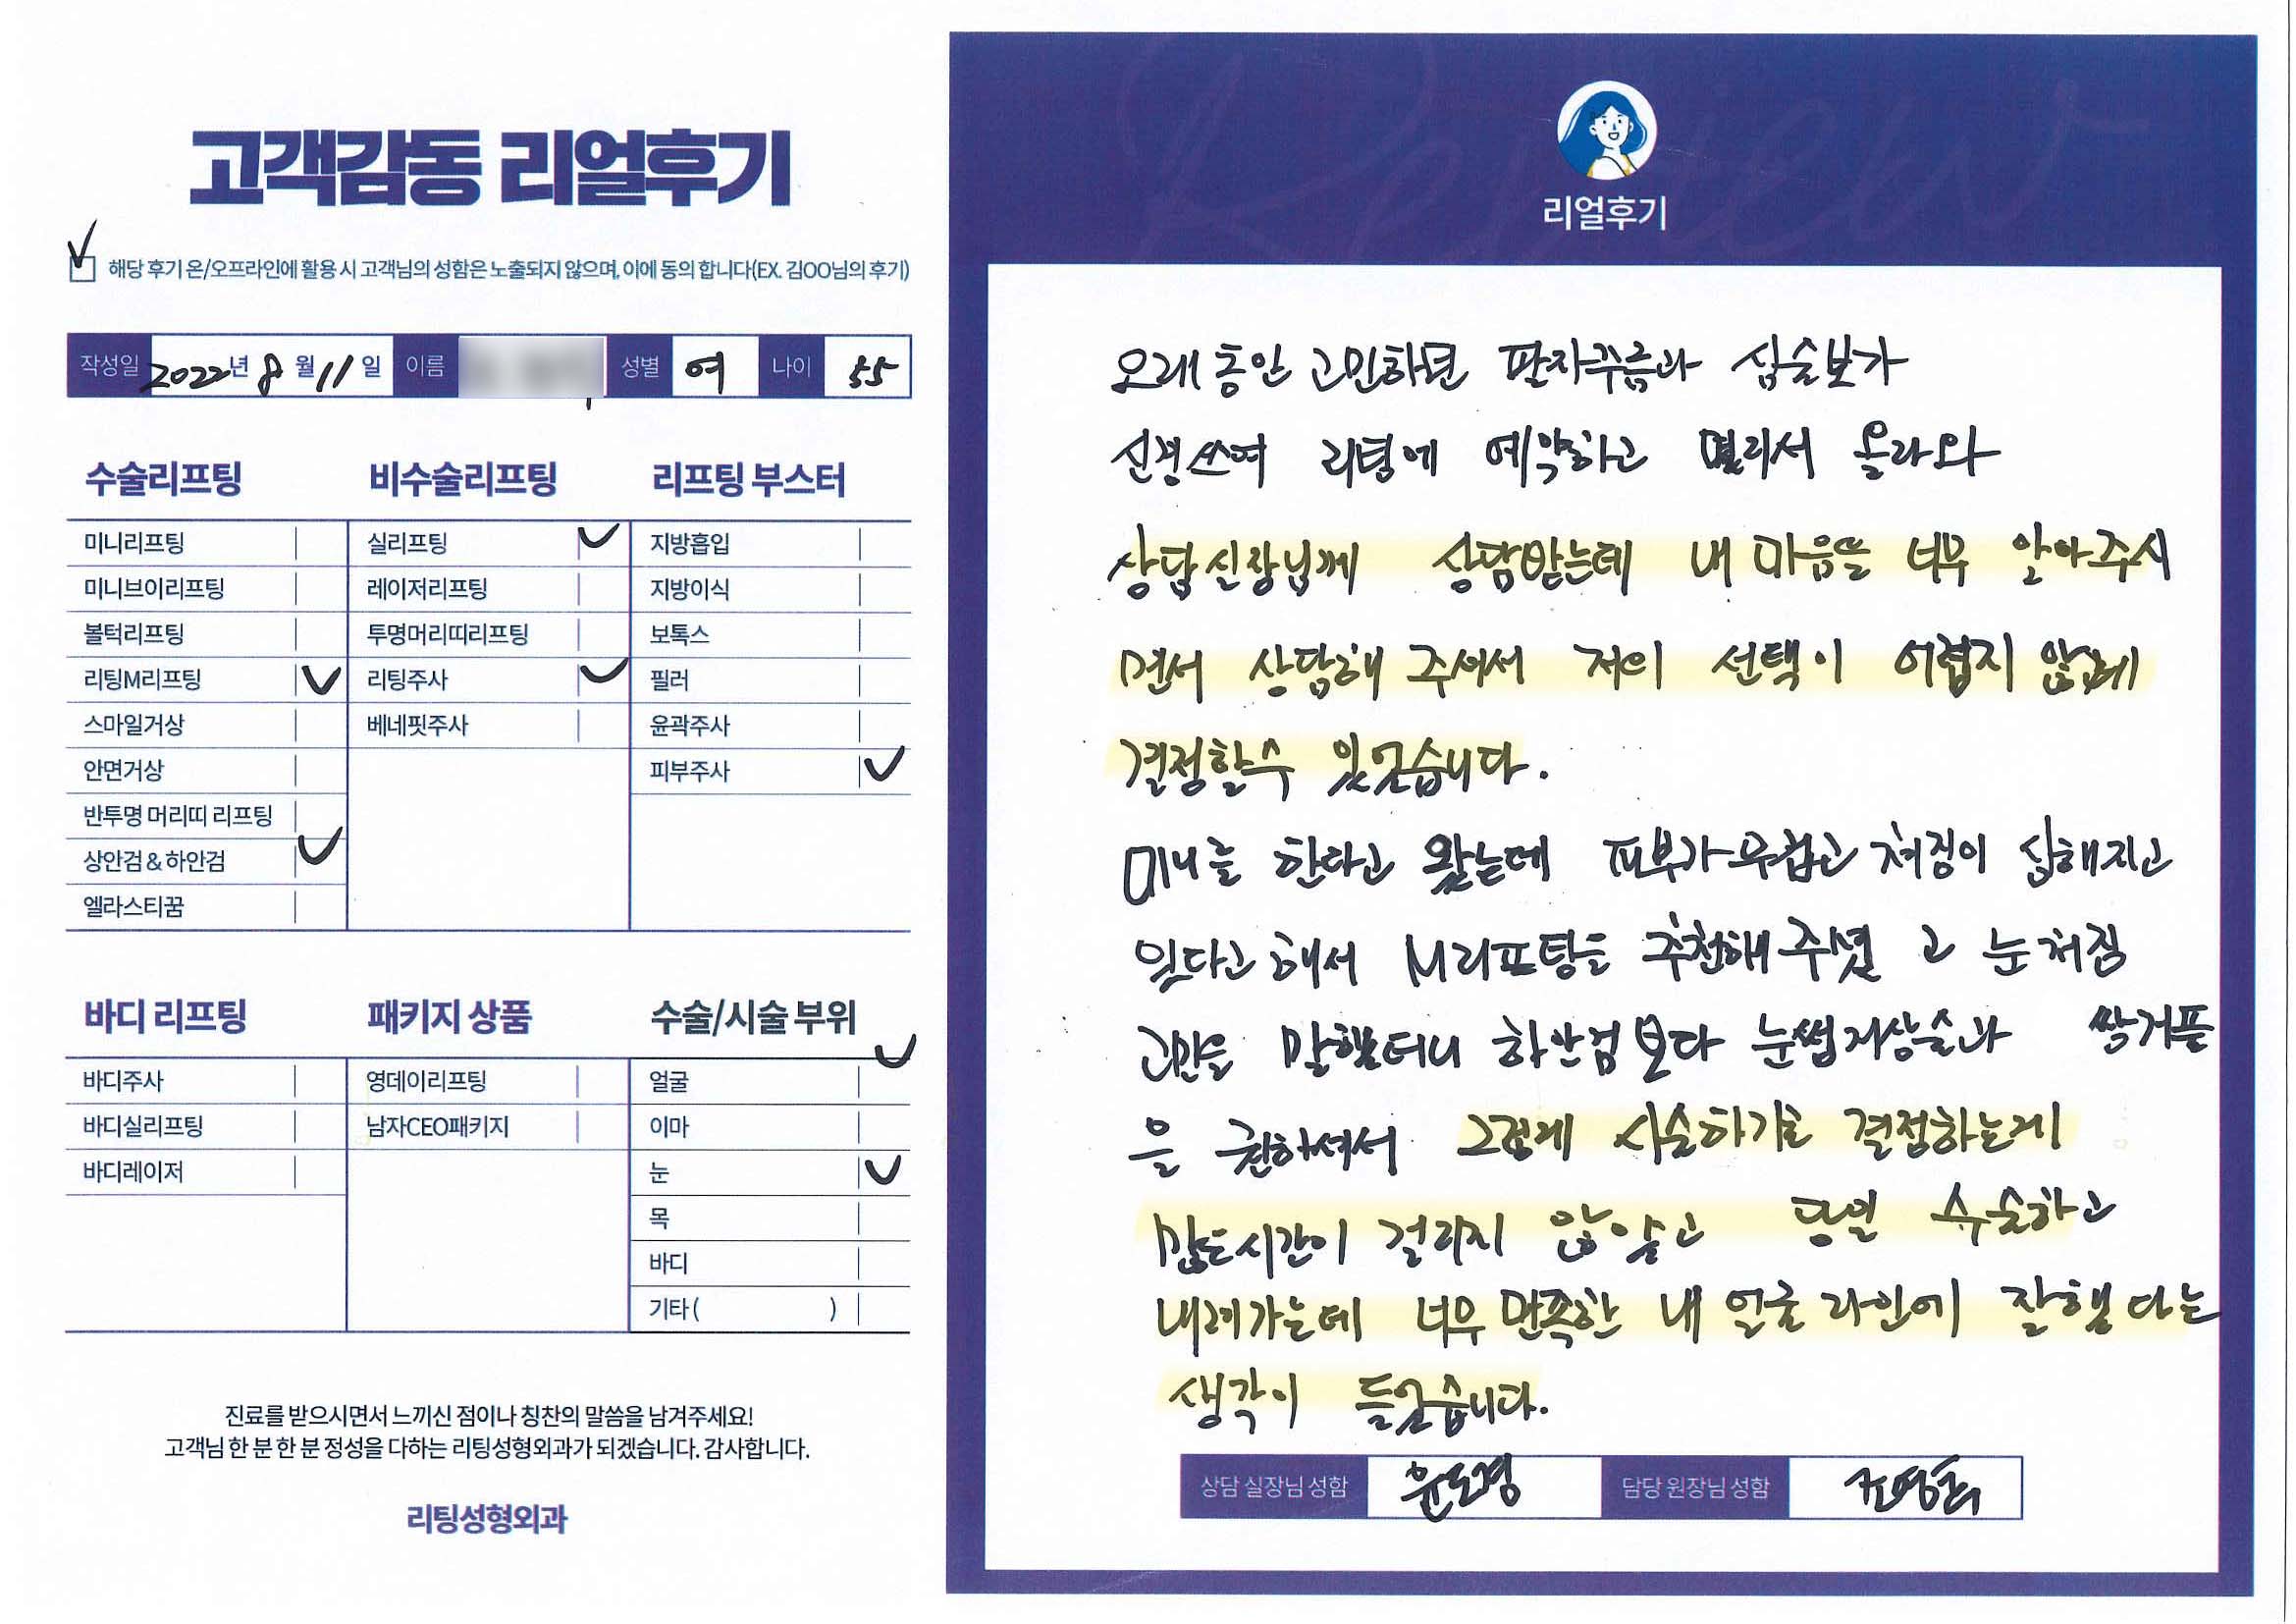 고객감동 리얼후기
해당 후기 온/오프라인에 활용 시 고객님의 성함은 노출되지 않으며, 이에 동의 합니다(EX. 김OO님의 후기)
작성일 2022년 8월 11일 이름 성별 여 나이 55
수술리프팅
미니리프팅
미니브이리프팅
볼턱리프팅
리팅M리프팅
스마일거상
안면거상
반투명 머리띠 리프팅
상안검 & 하안검
엘라스티꿈
비수술리프팅
실리프팅
레이저리프팅
투명머리띠리프팅
리팅주사
베네핏주사
리프팅 부스터
지방흡입
지방이식
보톡스
필러
윤곽주사
피부주사
바디 리프팅
바디주사
바디실리프팅
바디레이저
패키지 상품
영데이리프팅
남자CEO패키지
수술/시술 부위
얼굴
이마
눈
목
바디
기타 ( )
진료를 받으시면서 느끼신 점이나 칭찬의 말씀을 남겨주세요!
고객님 한 분 한 분 정성을 다하는 리팅성형외과가 되겠습니다. 감사합니다.
리팅성형외과
Review
리얼후기
오래 동안 고민하던 팔자주름과 심술보가
신경쓰여 리팅에 예약하고 멀리서 올라와
상담실장님께 상담받는데 내 마음을 너무 알아주시
면서 상담해 주셔서 저의 선택이 어렵지 않게
결정할수 있었습니다.
미니를 한다고 왔는데 피부가 무겁고 처짐이 심해지고
있다고 해서 M리프팅을 추천해 주셨고 눈처짐
고민을 말했더니 하안검보다 눈썹거상술과 쌍거플
을 권하셔서 그렇게 시술하기로 결정하는게
많은시간이 걸리지 않았고 당일 수술하고
내려가는데 너무 만족한 내 얼굴 라인에 잘했다는
생각이 들었습니다.
상담 실장님 성함 윤도경 담당 원장님 성함